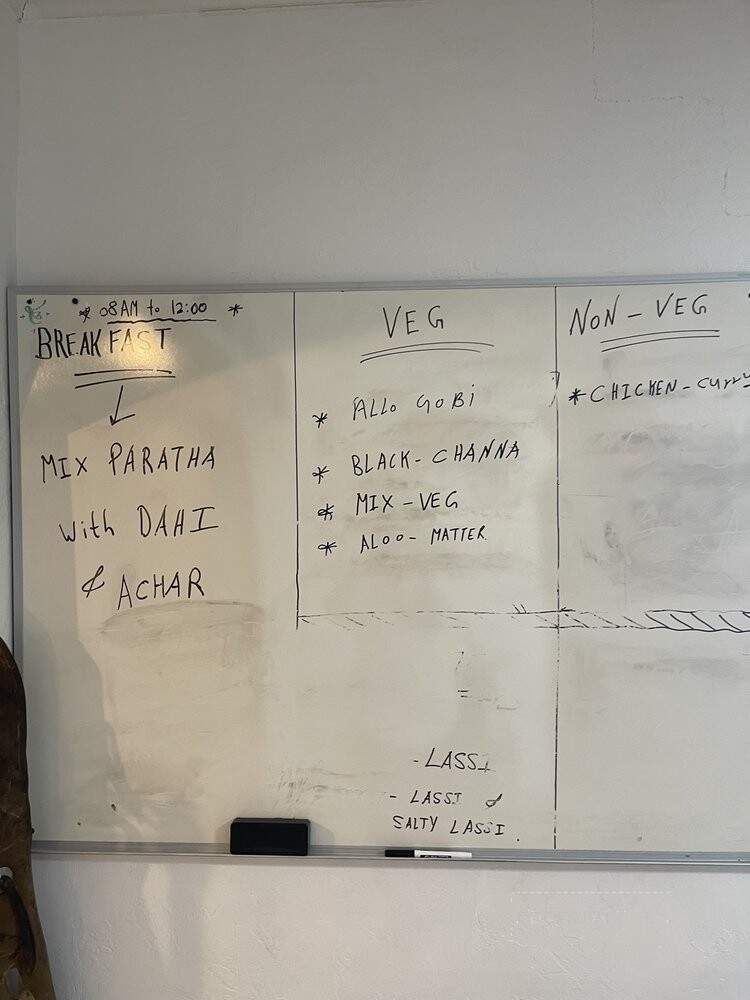 * 08AM to 12:00 *
BREAKFAST
MIX PARATHA
with DAHI
& ACHAR
VEG
* ALLO GOBI
* BLACK-CHANNA
* MIX-VEG
* ALOO-MATTER
- LASSI
- LASSI &
SALTY LASSI.
NON-VEG
* CHICKEN-CURRY